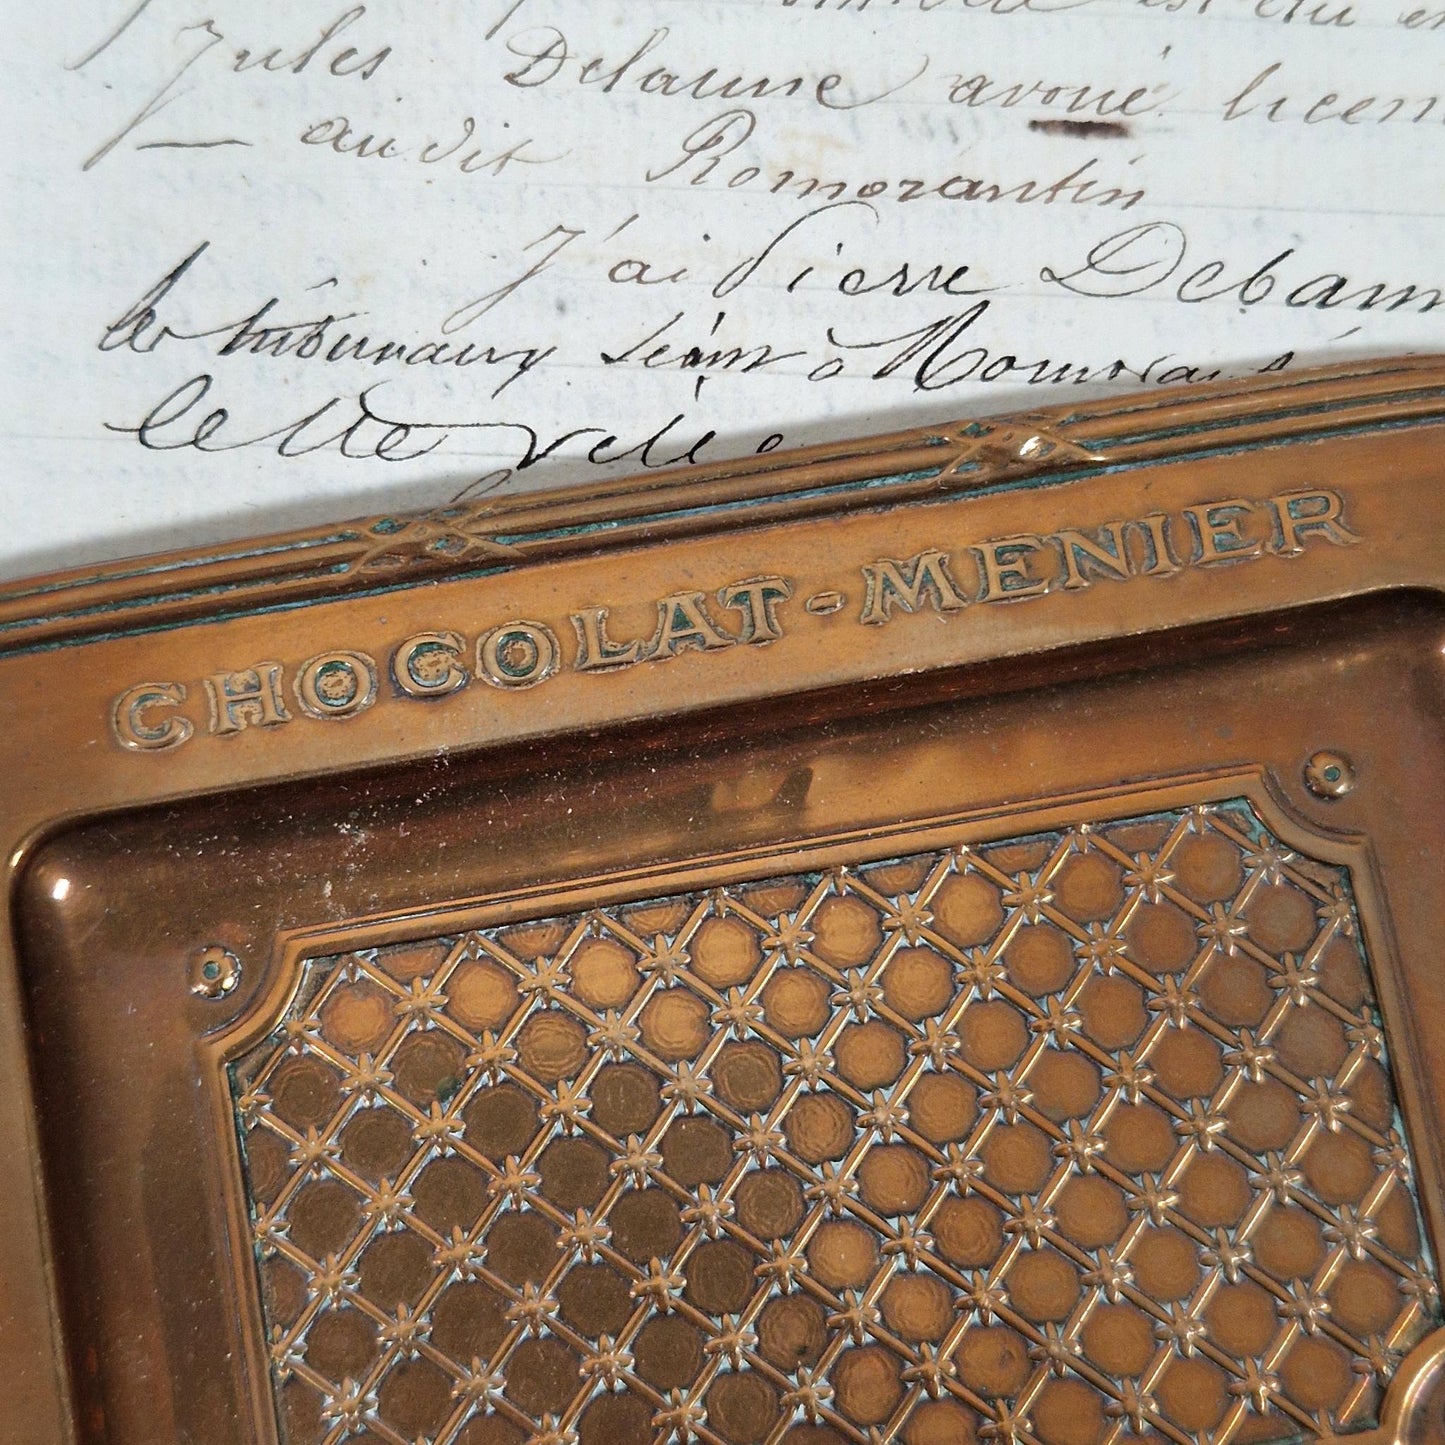 Jules Delaune avoué licen
au dit Romorantin
J'ai Pierre Debam
les tribunaux séant à Romora
lettre
CHOCOLAT-MENIER